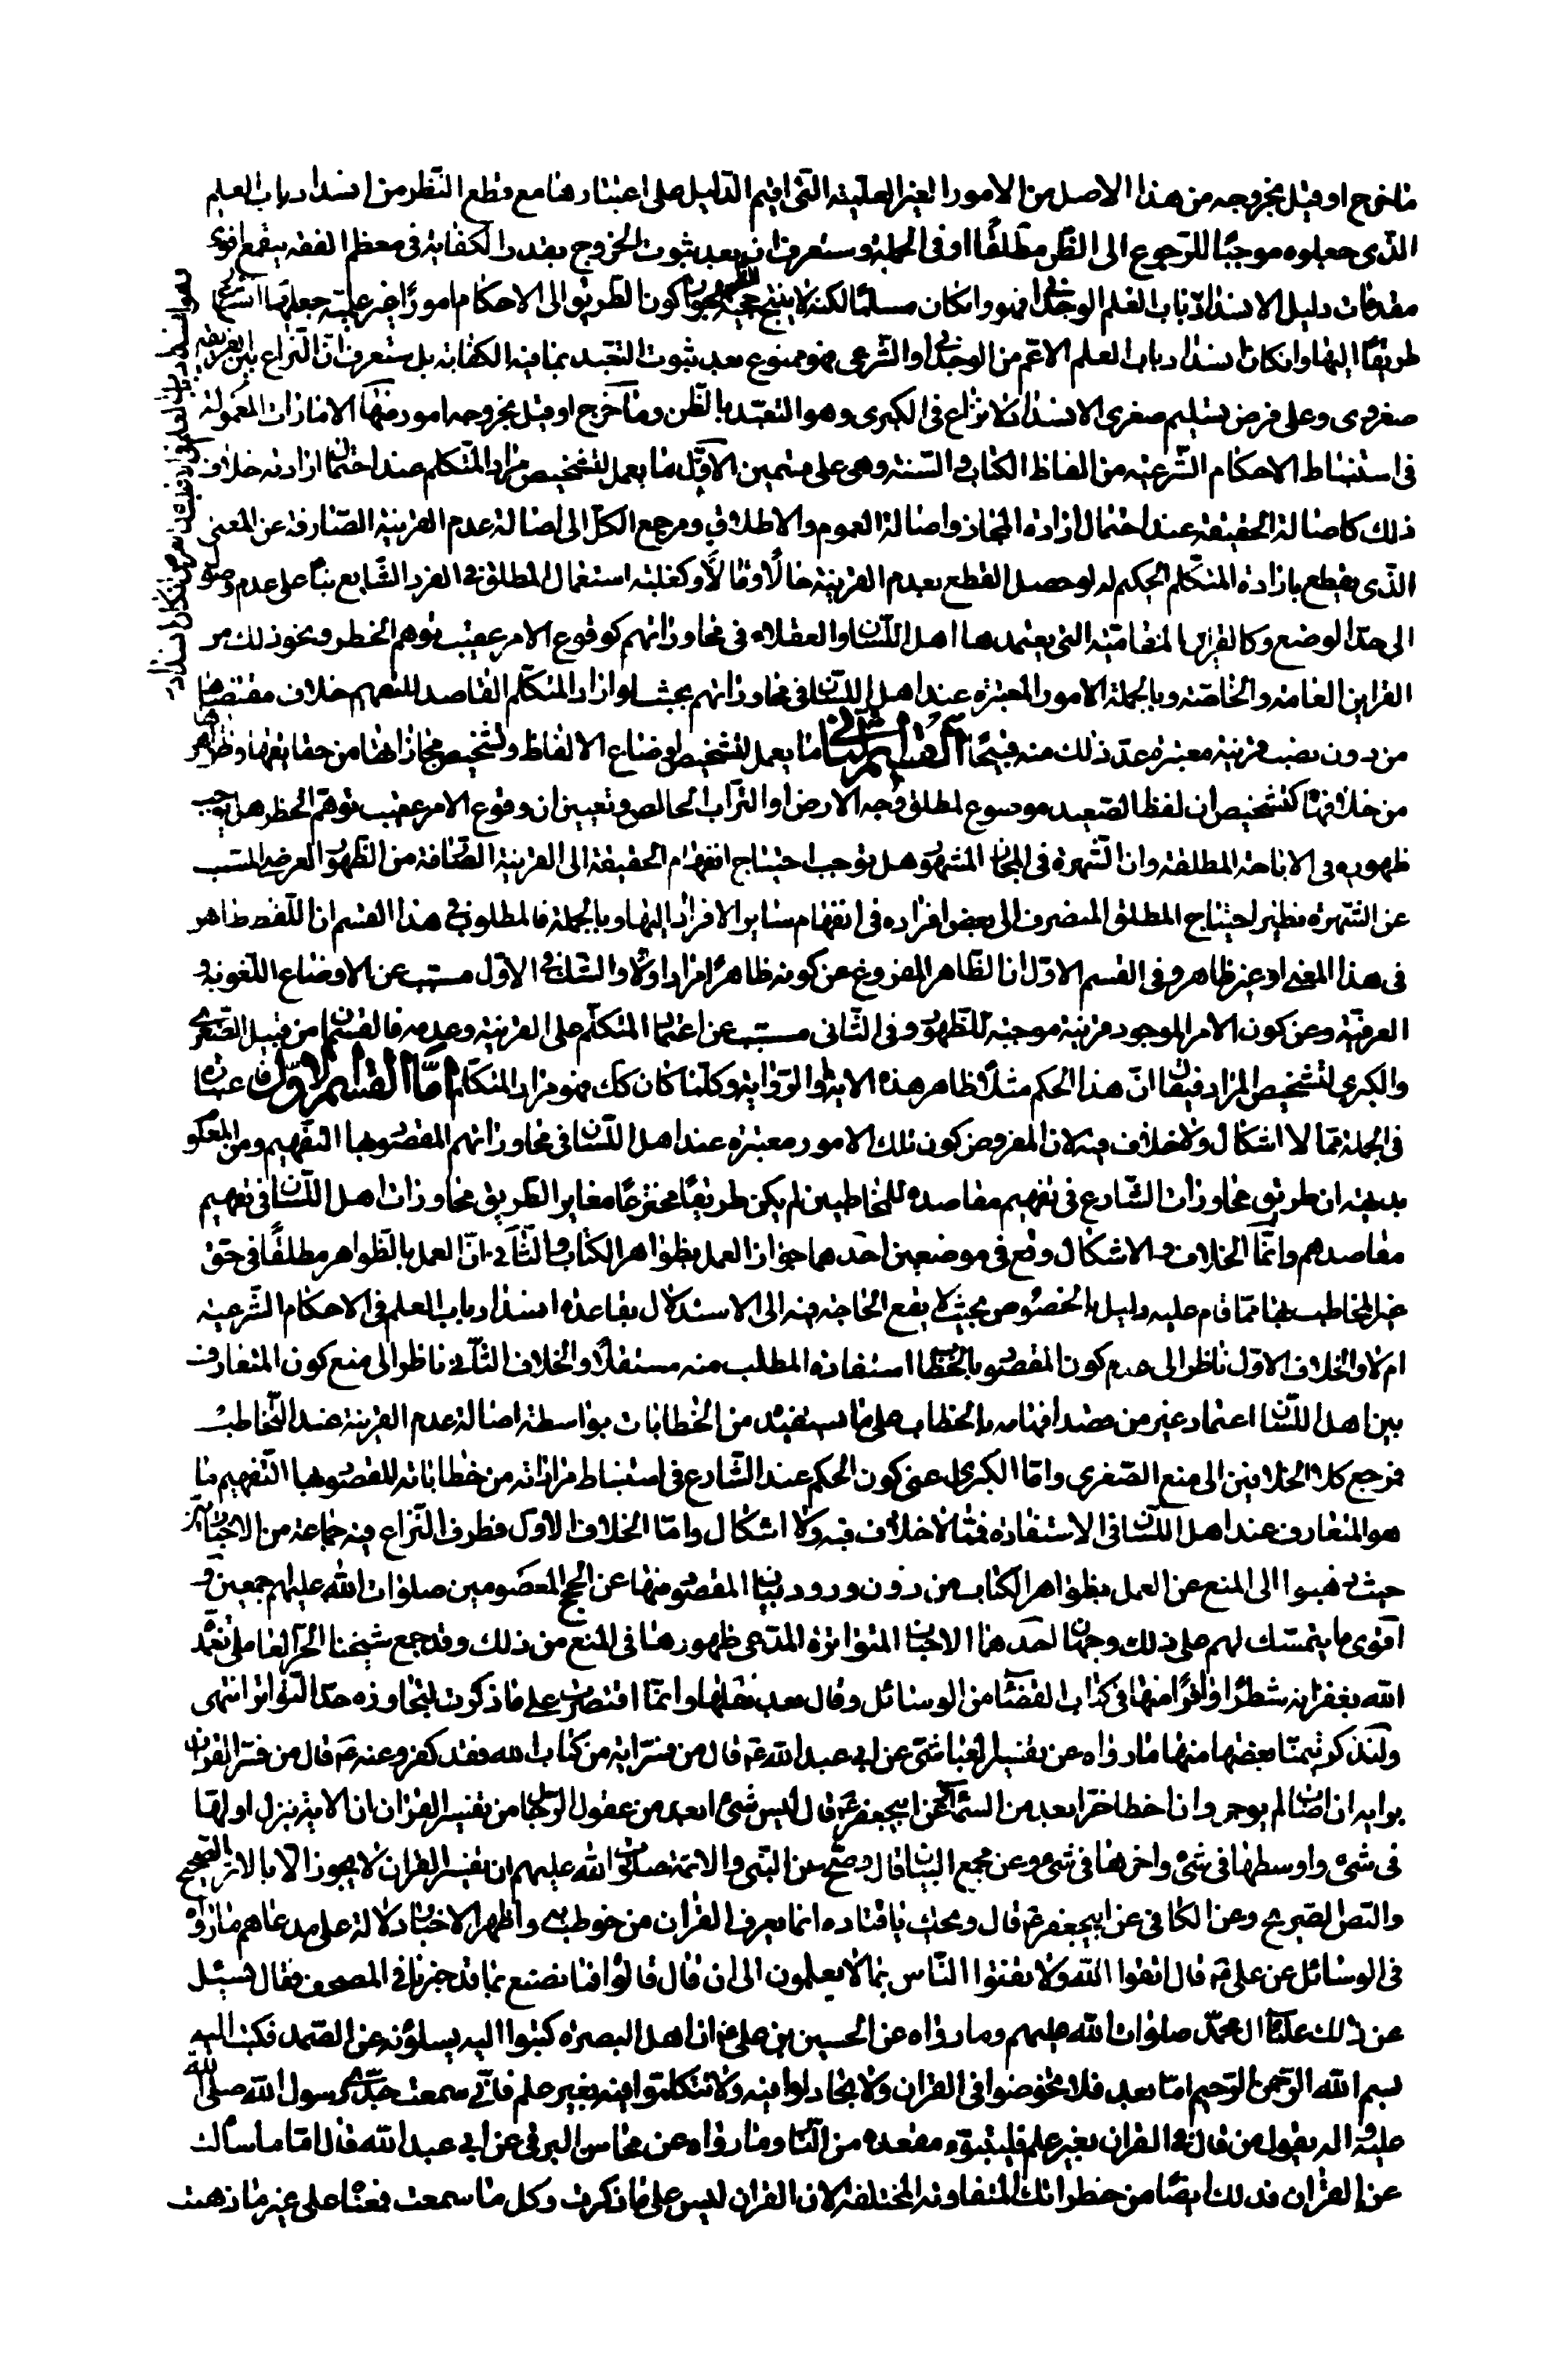 ما خرج او قيل بخروجه من هذا الاصل من الامور الغير العلمية التى اقيم الدليل على اعتبارها مع قطع النظر من انسداد باب العلم
الذى جعلوه موجبًا للرجوع الى الظن مطلقًا او فى الجملة وستعرف ان بعد ثبوت الخروج بقدر الكفاية فى معظم الفقه يقع اقوى
مقدمات دليل الانسداد باب العلم الوجدانى فهو وانكان مسلمًا لكنه لا ينتج حجية الظن لجواز كون الطريق الى الاحكام امورًا غير علمية جعلها الشرع
طريقًا اليها وانكان انسداد باب العلم الاعم من الوجدانى او الشرعى فهو ممنوع بعد ثبوت التعبد بما فيه الكفاية بل ستعرف ان النزاع بين الفريقين
صغروى وعلى فرض تسليم صغرى الانسداد لا نزاع فى الكبرى وهو التعبد بالظن وما خرج او قيل بخروجه امور منها الامارات المعمولة
فى استنباط الاحكام الشرعية من الفاظ الكتاب و السنة وهى على قسمين الاول ما يعمل لتشخيص مراد المتكلم عند احتمال ارادته خلاف
ذلك كاصالة الحقيقة عند احتمال ارادة المجاز واصالة العموم والاطلاق و مرجع الكل الى اصالة عدم القرينة الصارفة عن المعنى
الذى يقطع بارادة المتكلم الحكيم له لو حصل القطع بعدم القرينة حالًا ومالًا وكغلبة استعمال المطلق فى الفرد الشايع بناء على عدم وصوله
الى حد الوضع وكالقراين المقامية التى يعتمدها اهل اللسان والعقلاء فى محاوراتهم كوقوع الامر عقيب توهم الخطر ونحو ذلك من
القراين العامة والخاصة وبالجملة الامور المعتبرة عند اهل اللسان فى محاوراتهم بحيث لو اراد المتكلم القاصد للتفهيم خلاف مقتضاها
من دون نصب قرينة معتبرة عد ذلك منه قبيحًا القسم الثانى ما يعمل لتشخيص اوضاع الالفاظ وتشخيص مجازاتها من حقايقها وظواهرها
من خلافها كتشخيص ان لفظ الصعيد موضوع لمطلق وجه الارض او التراب الخالص وتعيين ان وقوع الامر عقيب توهم الحظر هل يوجب
ظهوره فى الاباحة المطلقة وان الشهرة فى المجاز المشهور هل توجب احتياج انفهام الحقيقة الى القرينة الصارفة من الظهور العرضى المسبب
عن الشهرة نظير احتياج المطلق المنصرف الى بعض افراده فى انفهام ساير الافراد اليها وبالجملة فالمطلوب فى هذا القسم ان اللفظ ظاهر
فى هذا المعنى او غير ظاهر و فى القسم الاول ان الظاهر المفروغ عن كونه ظاهرًا مراد اولًا والشك فى الاول مسبب عن الاوضاع اللغوية و
العرفية وعن كون الامر الموجود قرينة موجبة للظهور و فى الثانى مسبب عن اعتماد المتكلم على القرينة وعدمه فالقسمان من قبيل الصغرى
والكبرى لتشخيص المراد فيقال ان هذا الحكم مثلًا ظاهر هذه الاية او الرواية وكلما كان كك فهو مراد المتكلم اما القسم الاول فاعتباره
فى الجملة مما لا اشكال ولا خلاف فيه لان المفروض كون تلك الامور معتبرة عند اهل اللسان فى محاوراتهم المقصود بها التفهيم ومن المعلوم
بديهة ان طريق محاورات الشارع فى تفهيم مقاصده للمخاطبين لم يكن طريقًا مخترعًا مغاير الطريق محاورات اهل اللسان فى تفهيم
مقاصدهم وانما الخلاف و الاشكال وقع فى موضعين احدهما جواز العمل بظواهر الكتاب و الثانى ان العمل بالظواهر مطلقًا فى حق
غير المخاطب بها مما قام عليه دليل بالخصوص بحيث لا يقع الحاجة فيه الى الاستدلال بقاعدة انسداد باب العلم فى الاحكام الشرعية
ام لا والخلاف الاول ناظر الى عدم كون المقصود بالخطاب استفادة المطلب منه مستقلًا والخلاف الثانى ناظر الى منع كون المتعارف
بين اهل اللسان اعتماد غير من قصد افهامه بالخطاب على ما يستفيده من الخطابات بواسطة اصالة عدم القرينة عند التخاطب
فمرجع كلا الخلافين الى منع الصغرى واما الكبرى اعنى كون الحكم عند الشارع فى استنباط مراداته من خطاباته المقصود بها التفهيم ما
هو المتعارف عند اهل اللسان فى الاستفادة فمما لا خلاف فيه ولا اشكال واما الخلاف الاول فطرف النزاع فيه جماعة من الاخباريين
حيث ذهبوا الى المنع عن العمل بظواهر الكتاب من دون ورود بيان المقصود منها عن الحجج المعصومين صلوات الله عليهم اجمعين و
اقوى ما يتمسك لهم على ذلك وجهان احدهما الاخبار المتواترة المدعى ظهورها فى المنع من ذلك وقد جمع شيخنا الحر العاملى تغمده
الله بغفرانه شطرًا وافرًا منها فى كتاب القضاء من الوسائل وقال بعد نقلها وانما اقتصرت على ما ذكرت لتجاوزه حد التواتر انتهى
ولنذكر تيمنًا بعضها منها ما رواه عن تفسير العياشى عن ابى عبد الله ع قال من فسر اية من كتاب الله فقد كفر وعنه ع قال من فسر القران
برايه ان اصاب لم يوجر وان اخطا خر ابعد من السماء وعن ابيجعفر ع قال ليس شئ ابعد من عقول الرجال من تفسير القران ان الاية ينزل اولها
فى شئ واوسطها فى شئ واخرها فى شئ وعن مجمع البيان قال وصح عن النبى والائمة صلوات الله عليهم ان تفسير القران لا يجوز الا بالاثر الصحيح
والنص الصريح وعن الكافى عن ابيجعفر ع قال ويحك يا قتاده انما يعرف القران من خوطب به واظهر الاخبار دلالة على مدعاهم ما رواه
فى الوسائل عن على ع قال اتقوا الله ولا تفتوا الناس بما لا يعلمون الى ان قال قالوا فما نصنع بما قد خبرنا فى المصحف فقال يسئل
عن ذلك علماء ال محمد صلوات الله عليهم وما رواه عن الحسين بن على ع ان اهل البصرة كتبوا اليه يسئلونه عن الصمد فكتب اليهم
بسم الله الرحمن الرحيم اما بعد فلا تخوضوا فى القران ولا تجادلوا فيه ولا تتكلموا فيه بغير علم فانى سمعت جدى رسول الله صلى الله
عليه واله يقول من قال فى القران بغير علم فليتبوء مقعده من النار وما رواه عن محاسن البرقى عن ابى عبد الله قال اما ما سألت
عن القران فذلك ايضًا من خطراتك المتفاوتة المختلفة لان القران ليس على ما ذكرت وكل ما سمعت فمعناه على غير ما ذهبت